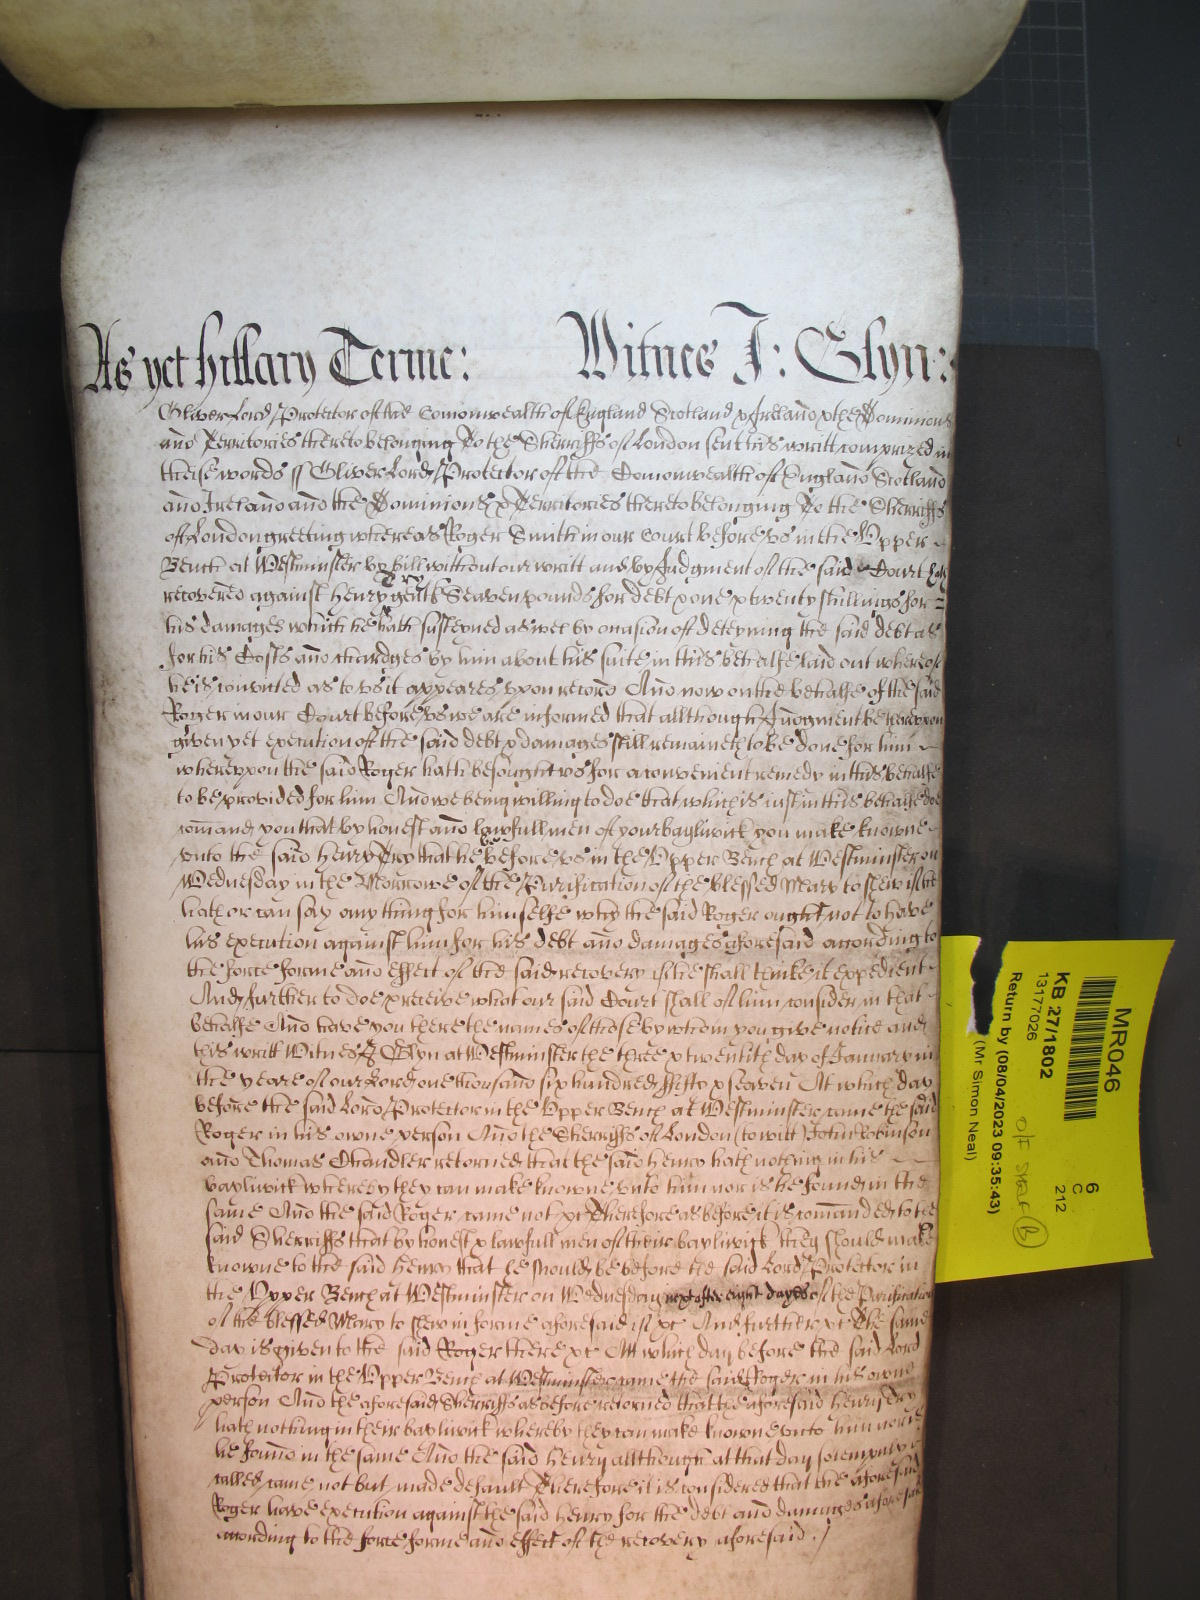 As yet hillary Terme: Witnes J: Glyn:
Oliver Lord Protector of the Comonwealth of England Scotland & Ireland & the Dominions
and Territories thereto belonging To the Sherriffs of London sent his writt comprized in
theise words ss Oliver Lord Protector of the Comonwealth of England Scotland
and Ireland and the Dominions & Territories thereto belonging To the Sherriffs
of London greeting whereas Roger Smith in our Court before us in the Upper
Bench at Westminster by bill without our writt and by Judgment of the said Court hath
Dry
recovered against henry gent Seaven pounds for debt & one & twenty shillings for
his damages which he hath susteyned aswel by occasion of deteyning the said debt as
for his Costs and chardges by him about his suite in this behalfe laid out whereof
he is convicted as to us it appeares upon record And now on the behalfe of the said
Roger in our Court before us we are informed that allthough Judgment be thereupon
given yet execution of the said debt & damages still remaineth to be done for him
whereuppon the said Roger hath besought us for a convenient remedy in this behalfe
to be provided for him And we being willing to doe that which is iust in this behalfe doe
comand you that by honest and lawfull men of your bayliwick you make knowne
unto the said henry Dry that he be before us in the Upper Bench at Westminster on
Wednesday in the Morrowe of the Purification of the blessed Mary to shew if he
hath or can say any thing for himselfe why the said Roger ought not to have
his execution against him for his debt and damages aforesaid according to
the force forme and effect of the said recovery if he shall thinke it expedient
And further to doe & receive what our said Court shall of him consider in that
behalfe And have you there the names of those by whom you give notice and
this writt Witnes J Glyn at Westminster the three & twentith day of January in
the yeare of our Lord one thousand six hundred fifty & seaven At which day
before the said Lord Protector in the Upper Bench at Westminster came the said
Roger in his owne person And the Sherriffs of London (to witt) John Robinson
and Thomas Chandler retorned that the said henry hath nothing in his
bayliwick whereby they can make knowne unto him nor is he found in the
same And the said Roger came not &c Therefore as before it is comanded to the
said Sherriffs that by honest & lawfull men of their bayliwick they should make
knowne to the said henry that he should be before the said Lord Protector in
the Upper Bench at Westminster on Wednesday next after eight dayes of the Purification
of the blessed Mary to shew in forme aforesaid if &c And further &c The same
day is given to the said Roger there &c At which day before the said Lord
Protector in the Upper Bench at Westminster came the said Roger in his owne
person And the aforesaid Sherriffs as before retorned that the aforesaid henry Dry
hath nothing in their bayliwick whereby they can make knowne unto him nor is
he found in the same And the said henry allthough at that day solempnly
called came not but made default Therefore it is considered that the aforesaid
Roger have execution against the said henry for the debt and damages aforesaid
according to the force forme and effect of the recovery aforesaid ./
MR046
6
C
212
KB 27/1802
13177026
Return by (08/04/2023 09:35:43)
(Mr Simon Neal)